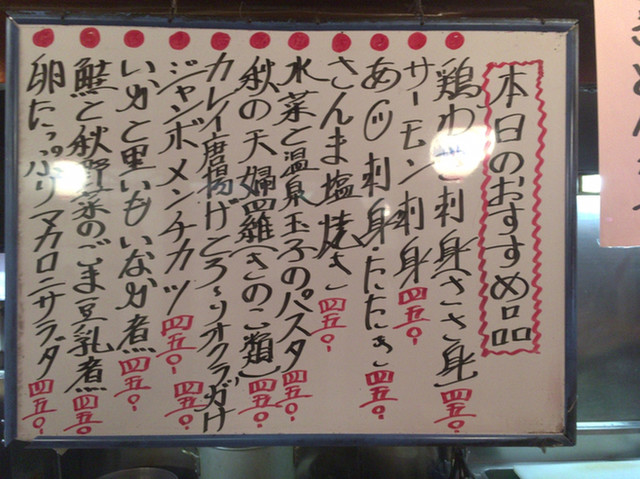 本日のおすすめ品
鶏わさ刺身(ささ身)四五〇.
サーモン刺身 四五〇.
あじ刺身たたき 四五〇.
さんま塩焼き 四五〇.
水菜と温泉玉子のパスタ 四五〇.
秋の天婦羅(きのこ類) 四五〇.
カレイ唐揚げとろ〜りオクラがけ 四五〇.
ジャンボメンチカツ 四五〇.
いかと里いもいなか煮 四五〇.
鮭と秋野菜のごま豆乳煮 四五〇.
卵たっぷりマカロニサラダ 四五〇.